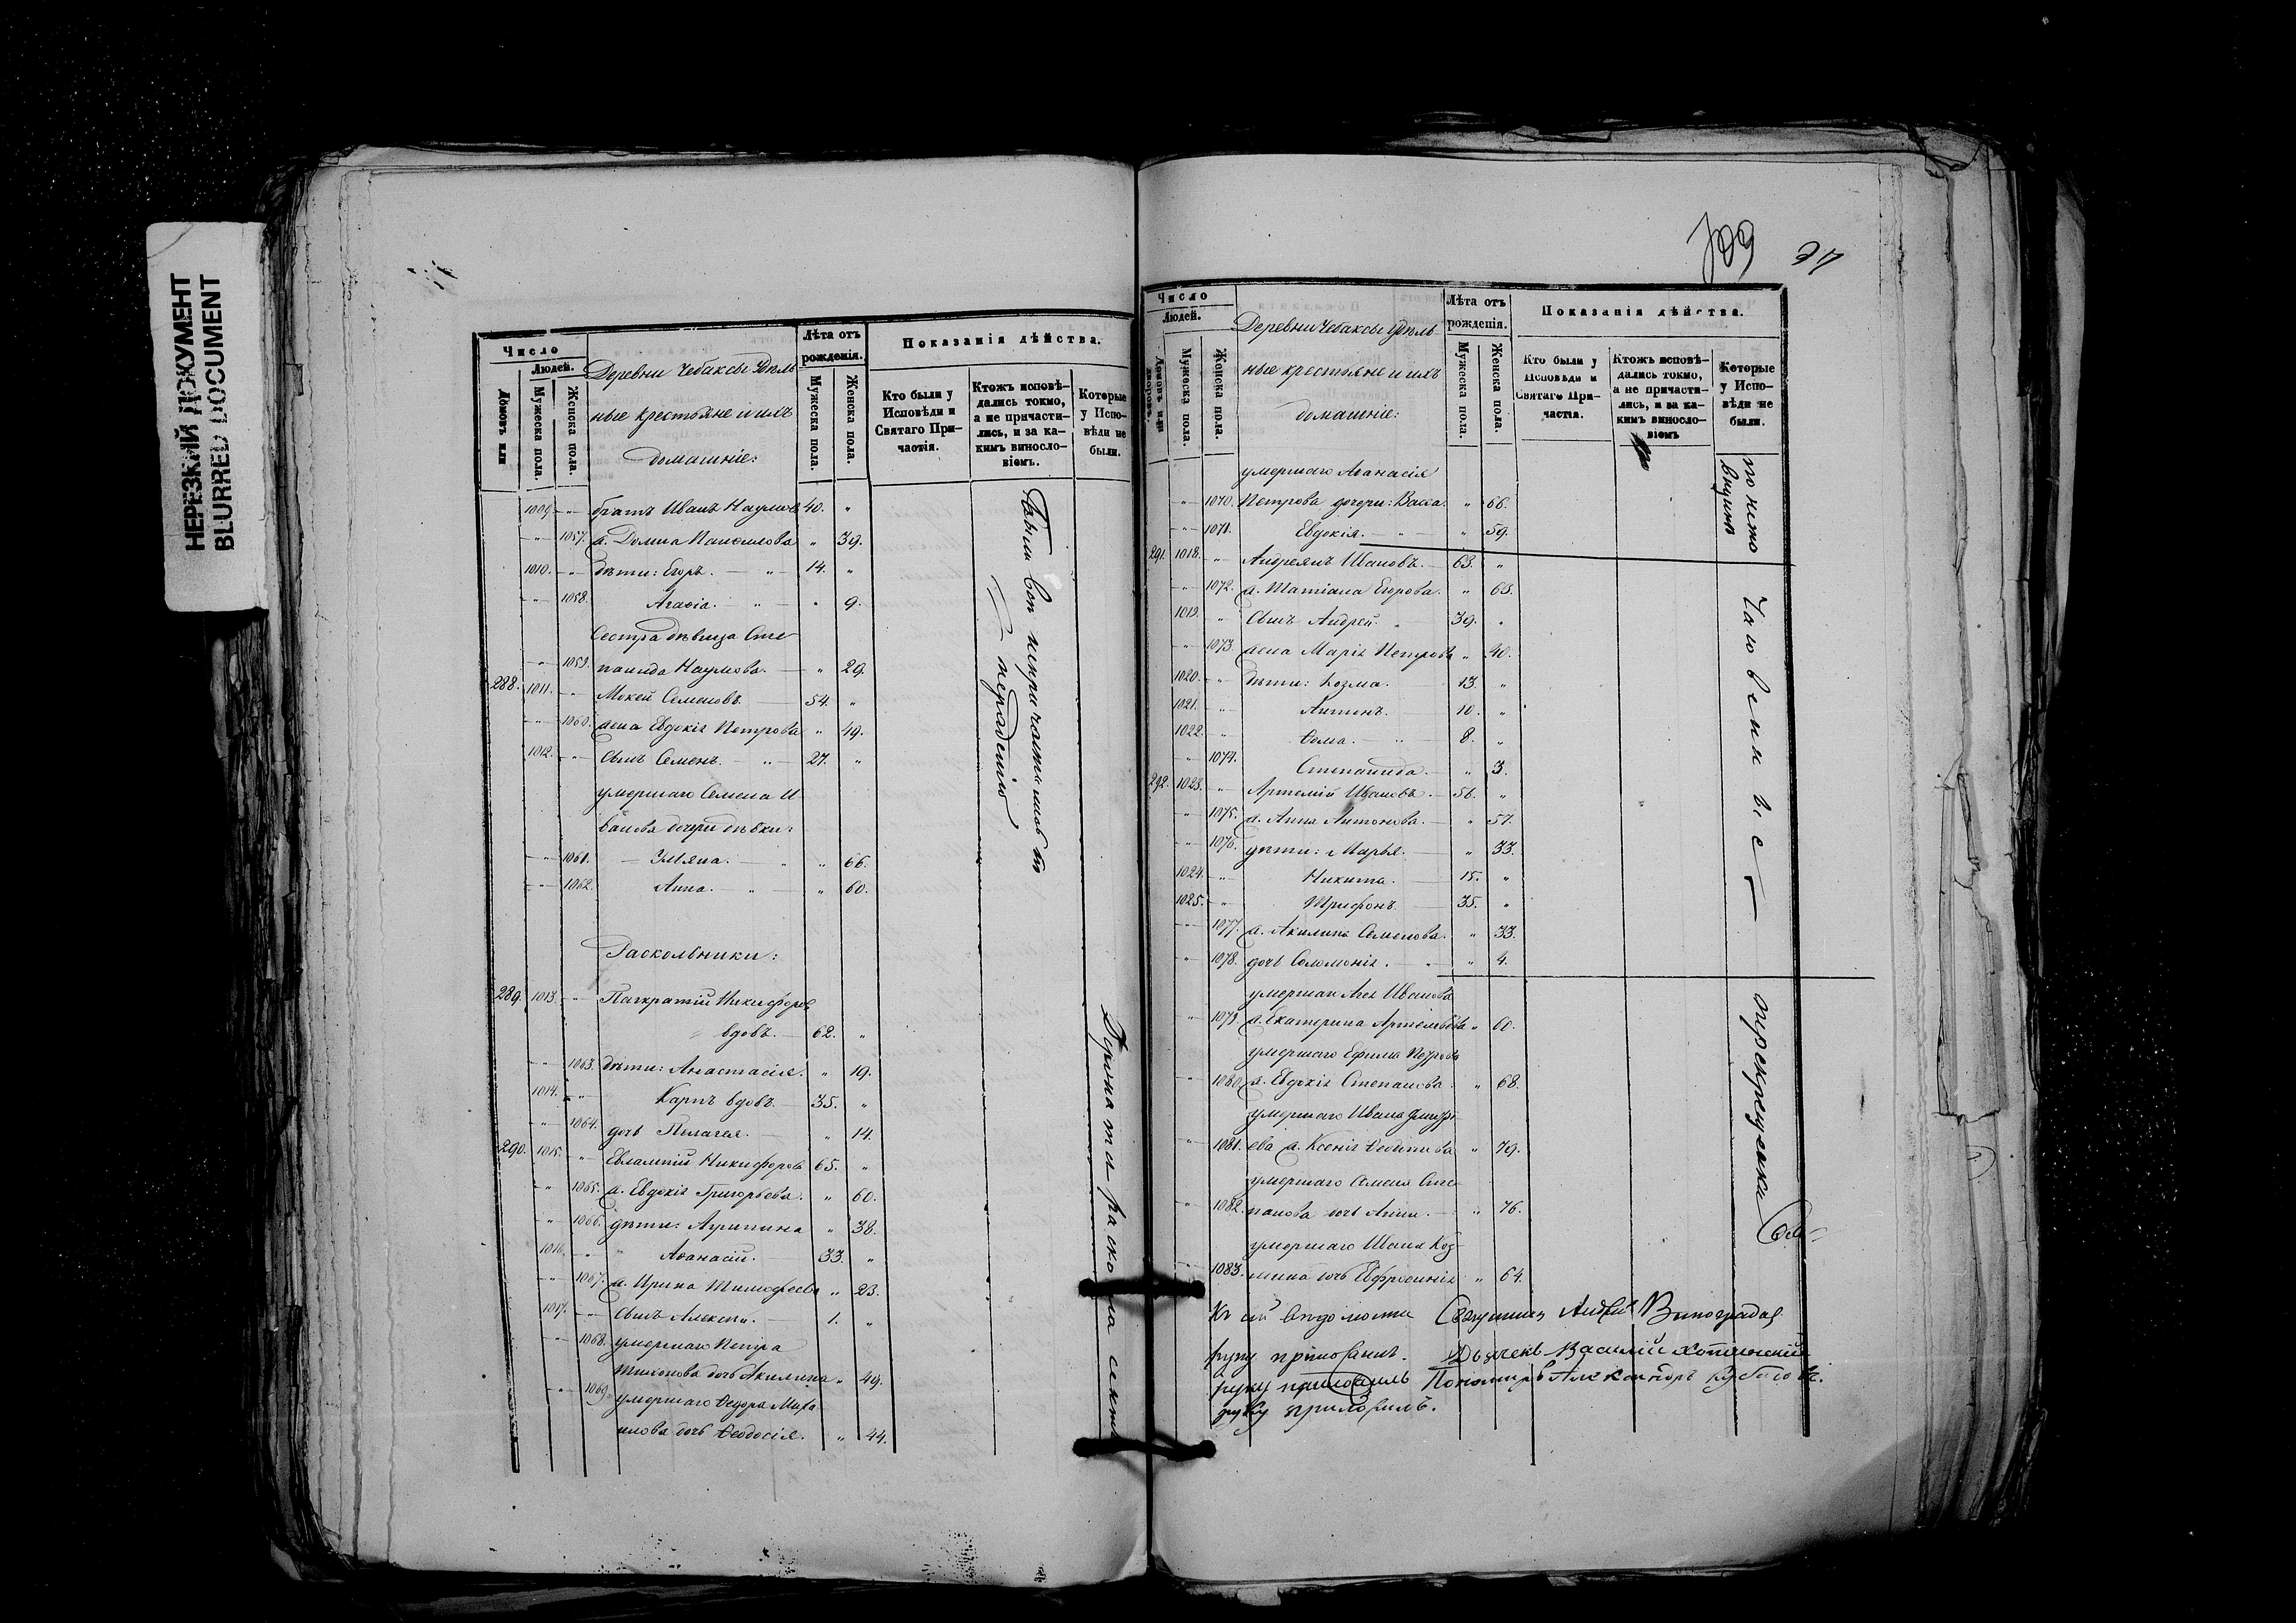 НЕРЕЗКИЙ ДОКУМЕНТ
BLURRED DOCUMENT
Число
Людей.
Домовъ или
Мужеска пола.
Женска пола.
Деревни Чебаксы Удѣль
ные крестьяне и ихъ
домашніе:
Лѣта отъ рожденія.
Мужеска пола.
Женска пола.
Показанія дѣйства.
Кто были у Исповѣди и Святаго Причастія.
Ктожъ исповѣдались токмо, а не причастились, и за какимъ винословіемъ.
Которые у Исповѣди не были.
1009. братъ Иванъ Наумовъ 40. "
1057. ж. Домна 39.
1010. дѣти: Егоръ. 14. "
1058. Агафія. " 9.
Сестра дѣвица Сте-
1059. панида Наумова. " 29.
288. 1011. Мокей Семеновъ. 54. "
1060. жена Евдокія Петрова " 49.
1012. Сынъ Семенъ. 27. "
умершаго Семена И-
ванова дочери дѣвки:
1061. " 66.
1062. Анна. " 60.
Раскольники:
289. 1013. Панкратій Никифоров
вдовъ. 62. "
1063. дѣти: Анастасія. " 19.
1014. Карпъ вдовъ. 35. "
1064. дочь Пелагея. " 14.
290. 1015. Евлампій Никифоров 65. "
1065. ж. Евдокія Григорьева. " 60.
1066. дѣти: Агрипина " 38.
1016. Аѳанасій. 33. "
1067. ж. Ирина Тимофеева " 23.
1017. Сынъ Алексѣй. 1. "
1068. умершаго Петра
дочь Акилина " 49.
1069. умершаго Ѳедора Миха
илова дочь Ѳеодосія. " 44.
Были
по нерадѣнію
секты
709
Число
Людей.
Мужеска пола.
Женска пола.
Деревни Чебаксы Удѣль
ные крестьяне и ихъ
домашніе:
Лѣта отъ рожденія.
Мужеска пола.
Женска пола.
Показанія дѣйства.
Кто были у Исповѣди и Святаго Причастія.
Ктожъ исповѣдались токмо, а не причастились, и за какимъ винословіемъ
Которые у Исповѣди не были.
умершаго Аѳанасія
1070. Петрова дочери: Васса. " 66.
1071. Евдокія. " 59.
291. 1018. Андреянъ Ивановъ. 63. "
1072. ж. Татіана Егорова. " 63.
1019. Сынъ Андрей. 39. "
1073. жена Марія Петрова " 40.
1020. дѣти: Козма. 13. "
1021. Антонъ. 10. "
1022. Ѳома. 8. "
1074. Степанида. " 3.
292. 1023. Артемій Ивановъ. 56. "
1075. ж. Анна Антонова. " 57.
1076. дѣти: Марья. " 33.
1024. Никита. 15. "
1025. Трифонъ. 35. "
1077. ж. Акилина Семенова. " 33.
1078. дочь Соломонія. " 4.
Иванова
1079. ж. Екатерина Артемьева " 60.
умершаго Ефима Петрова
1080. ж. Евдокія Степанова " 68.
умершаго Ивана Дмитрі
1081. ева ж. Ксенія " 79.
умершаго Семена Сте-
1082. панова дочь Анна. " 76.
умершаго Ивана Коз-
1083. мина дочь Евфросинія " 64.
Къ сей вѣдомости Священникъ Андрей Виноградов
руку приложилъ. Дьячекъ Василій
руку приложилъ Пономарь Александръ
руку приложилъ.